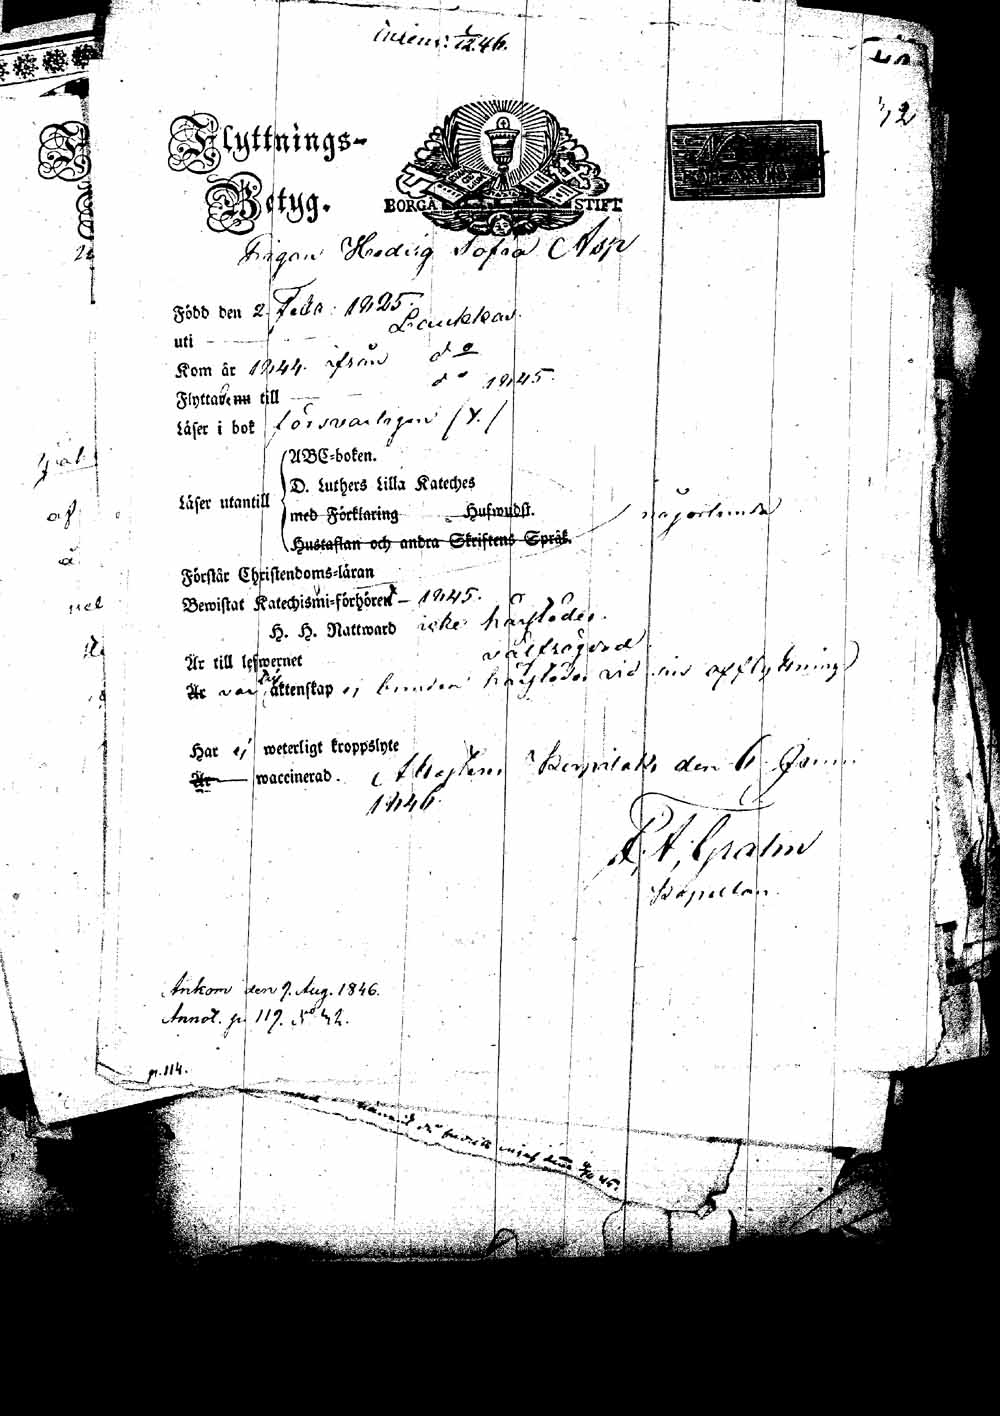 inlem: 1/12.46.
42
Flyttnings-
Betyg.
BORGÅ STIFT
Pigan Hedvig Sofia Asp
Född den 2 Febr: 1825.
uti Laukkas.
Kom år 1844. ifrån do
Flyttade till do 1845.
Läser i bok försvarligen (v.)
Läser utantill
ABC-boken.
D. Luthers Lilla Kateches
med Förklaring Hufwudst.
Hustaflan och andra Skriftens Språk.
någorlunda
Förstår Christendoms-läran
Bewistat Katechismi-förhören 1845.
H. H. Nattward icke härstädes.
Är till lefwernet välfrägdad
Är var till äktenskap ej bunden härstädes vid sin afflyttning
Har ej weterligt kroppslyte
Är waccinerad.
Kapellet den 6 Juni
1846.
Kapellan.
Ankom den 9. Aug. 1846.
Annot. p. 119. No 42.
p. 114.